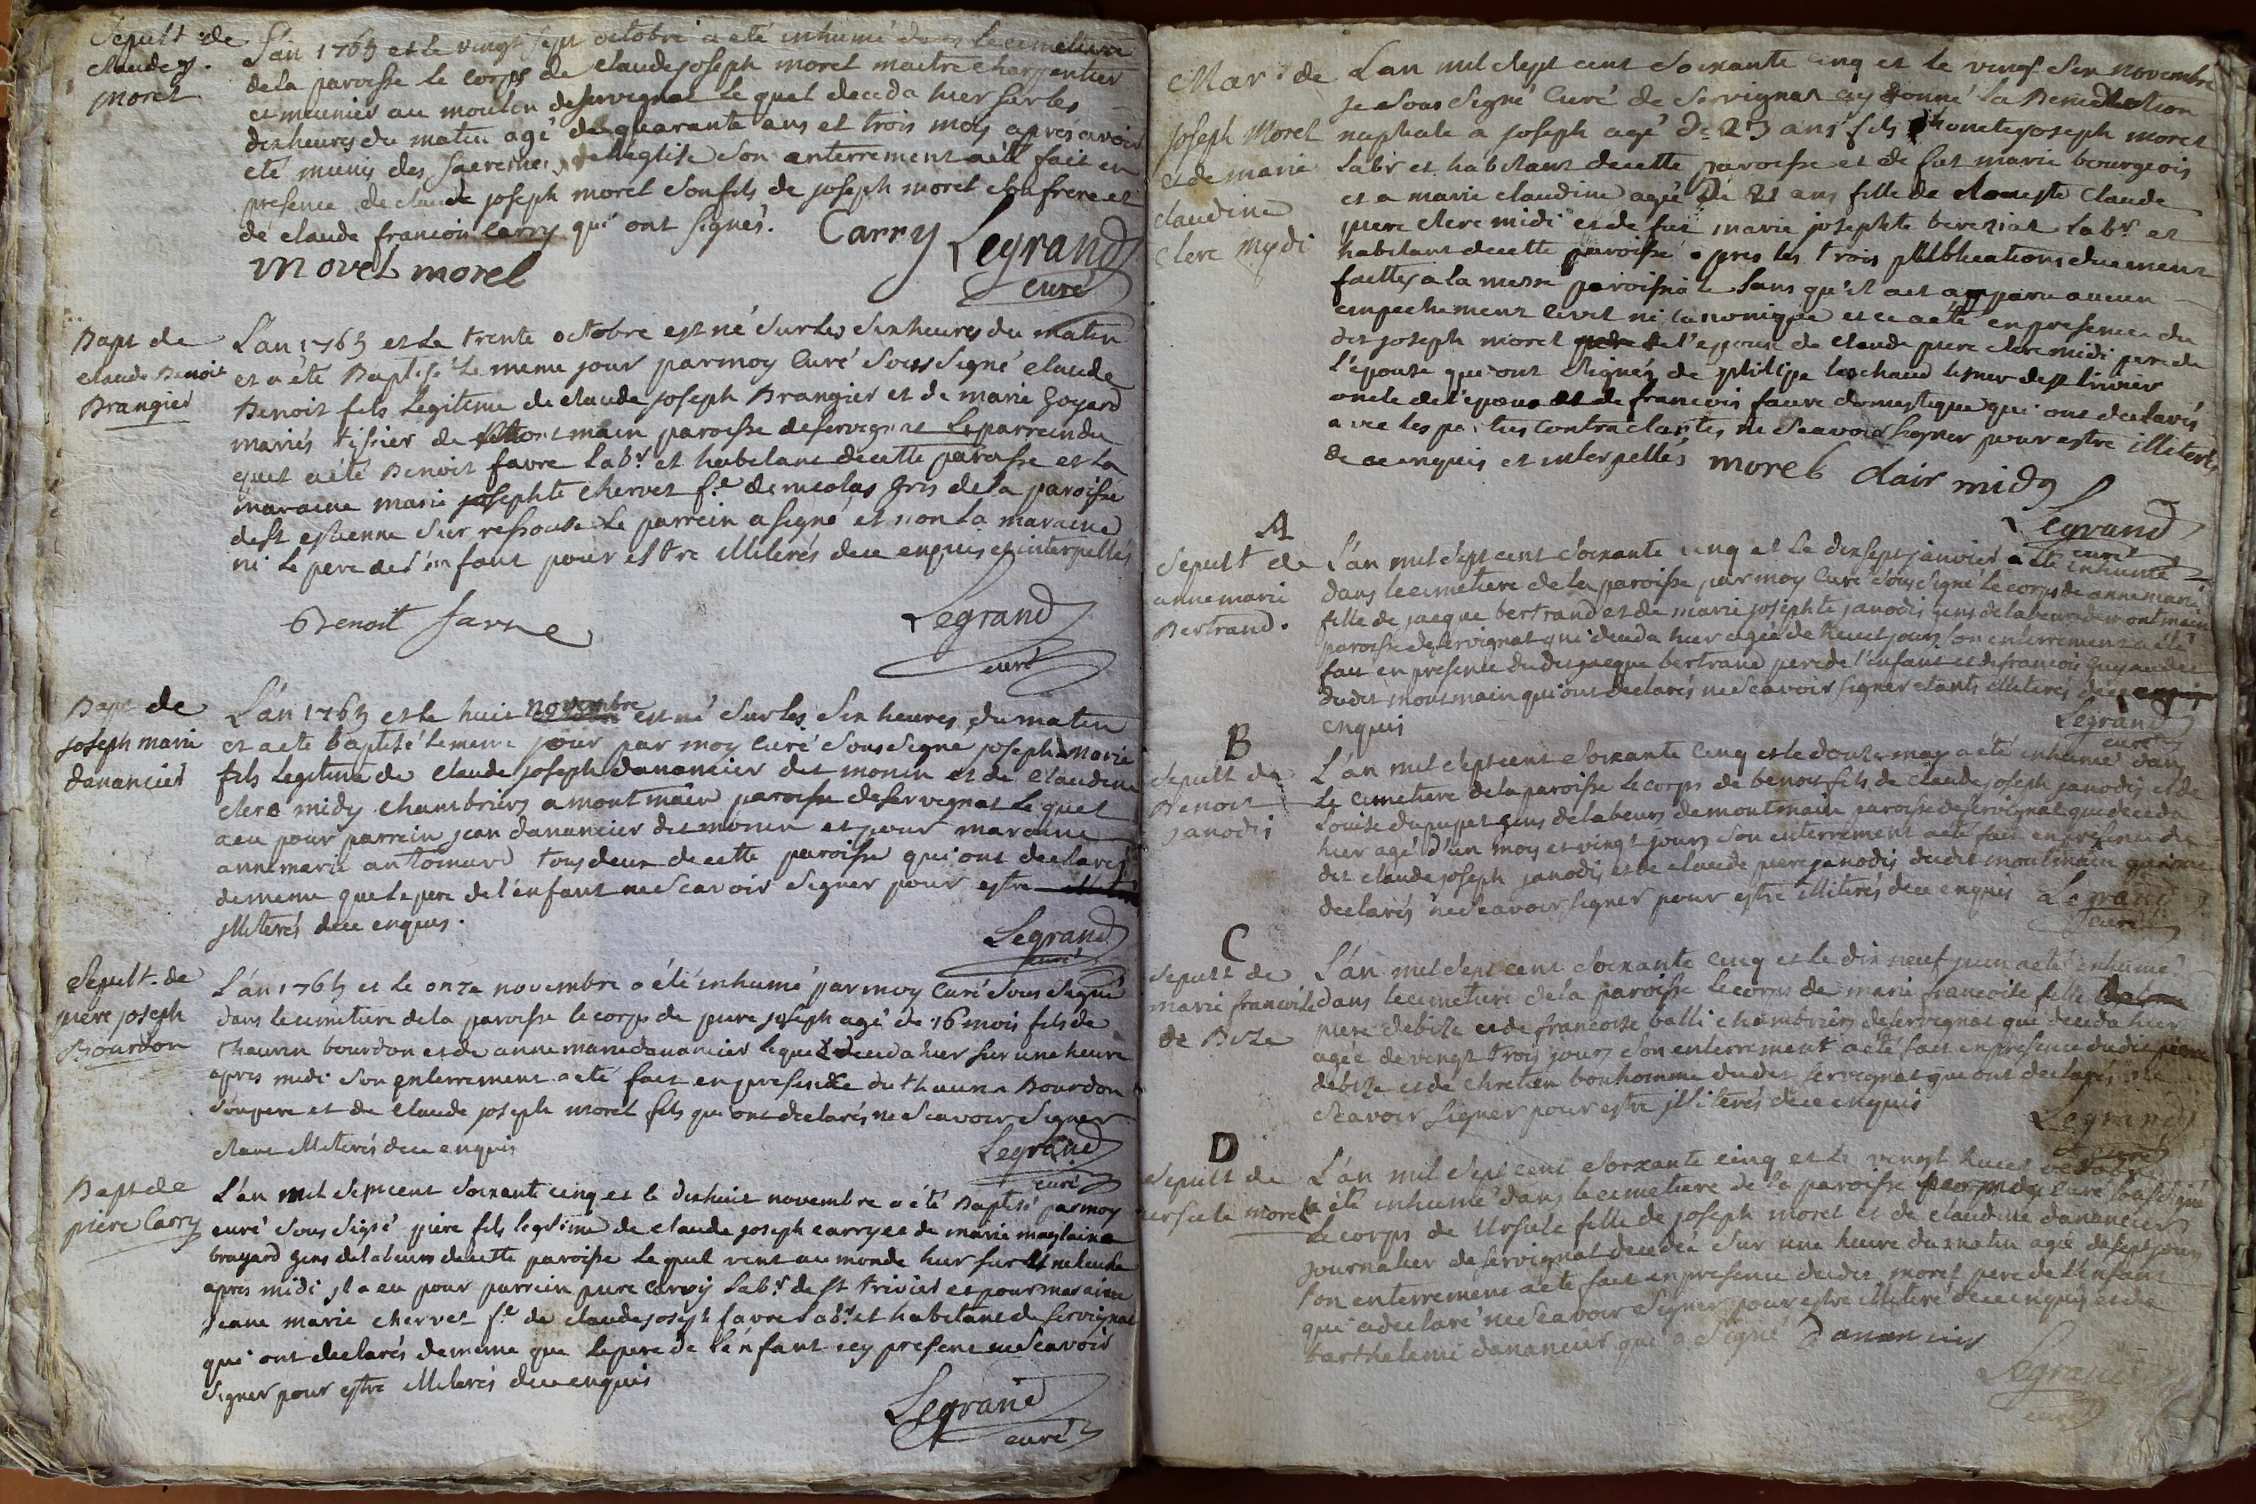 Sepult de
claude j.
morel
L'an 1765 et le vingt sept octobre a eté inhumé dans le cimetiere
de la paroisse le corps de claude joseph morel maitre charpentier
et meunier au moulin de servignat le quel deceda hier sur les
dix heures du matin agé de quarante ans et trois mois apres avoir
eté munis des sacremens de l'eglise son anterrement a eté fait en
presence de claude joseph morel son fils de joseph morel son frere et
de claude francois carry qui ont signés. Carry Legrand
morel morel curé
Bapt de
claude Benoit
Brangier
L'an 1765 et le trente octobre est né sur les six heures du matin
et a été Baptisé le meme jour par moy Curé sous signé claude
Benoit fils legitime de claude joseph Brangier et de marie Goyard
mariés tissier de montmain paroisse de servignat Le parrein du
quel a eté Benoit favre labr et habitant de cette paroisse et la
maraine marie josephte chervet fe de nicolas gris de la paroisse
de st estienne sur ressouse Le parrein a signé et non la maraine
ni le pere de l'enfant pour estre illiterés de ce enquis et interpellés
Benoit favre
Legrand
curé
Bapt de
joseph marie
danancier
L'an 1765 et le huit novembre est né sur les six heures du matin
et a eté baptisé le meme jour par moy Curé sous signé joseph marie
fils legitime de claude joseph danancier dit monin et de claudine
clere midy chambriers a montmain paroisse de servignat le quel
a eu pour parrein jean danancier dit monin et pour maraine
anne marie antoinard tous deux de cette paroisse qui ont declarés
de meme que le pere de l'enfant ne scavoir signer pour estre
illiterés de ce enquis.
Legrand
curé
Sepult. de
piere joseph
Bourdon
L'an 1765 et le onze novembre a été inhumé par moy Curé sous signé
dans le cimetiere de la paroisse le corps de piere joseph agé de 16 mois fils de
thaurin bourdon et de anne marie danancier le quel deceda hier sur une heure
apres midi son enterrement a eté fait en presence du thaurin Bourdon
son pere et de claude joseph morel fils qui ont declarés ne scavoir signer
etant illiterés de ce enquis
Legrand
curé
Bapt de
piere Carry
L'an mil sept cent soixante cinq et le dix huit novembre a été Baptisé par moy
curé sous signé piere fils legitime de claude joseph carry et de marie maglaine
brayard gens de labeurs de cette paroisse le quel vint au monde hier sur
apres midi il a eu pour parrein piere carry labr de st trivier et pour maraine
jeane marie chervet fe de claude joseph favre labr et habitant de servignat
qui ont declarés de meme que le pere de l'enfant icy present ne scavoir
signer pour estre illiterés de ce enquis
Legrand
curé
Mar. de
joseph Morel
et de marie
claudine
clere mydi
L'an mil sept cent soixante cinq et le vingt six novembre
je sous signé Curé de servignat ay donné la Benediction
nuptiale a joseph agé de 23 ans fils d'honete joseph morel
labr et habitant de cette paroisse et de fut marie bourgeois
et a marie claudine agée de 21 ans fille de honeste claude
piere clere midi et de fut marie josephte bereziat labr et
habitant de cette paroisse apres les trois publications duement
faittes a la messe paroissiale sans qu'il ait apparu aucun
empechement civil ni canonique et ce a eté en presence du
dit joseph morel pere de l'epoux de claude piere clere midi pere de
l'epouse qui ont signés de philipe lachaud de st trivier
oncle de l'epoux et de francois favre domestique qui ont declarés
avec les parties contractantes ne scavoir signer pour estre illiterés
de ce enquis et interpellés morel clair midy
Legrand
curé
A
Sepult de
anne marie
Bertrand.
L'an mil sept cent soixante cinq et le dix sept janvier a eté inhumé
dans le cimetiere de la paroisse par moy Curé sous signé le corps de anne marie
fille de jacque bertrand et de marie josephte janodis gens de labeurs de montmain
paroisse de servignat qui deceda hier agée de huit jours son enterrement a été
fait en presence du dit jacque bertrand pere de l'enfant et de francois
du dit montmain qui ont declarés ne scavoir signer etants illiterés de ce
enquis
Legrand
curé
B
Sepult de
Benoit
janodis
L'an mil sept cent soixante cinq et le douze may a été inhumé dans
le cimetiere de la paroisse le corps de benoit fils de claude joseph janodis et de
Louise dupupet gens de labeurs de montmain paroisse de servignat qui deceda
hier agé d'un mois et vingt jours son enterrement a eté fait en presence du
dit claude joseph janodis et de claude piere janodis du dit montmain qui ont
declarés ne scavoir signer pour estre illiterés de ce enquis Legrand
curé
C
Sepult de
marie francoise
de Bize
L'an mil sept cent soixante cinq et le dix neuf juin a eté inhumé
dans le cimetiere de la paroisse le corps de marie francoise fille
piere debize et de francoise balli chambriers de servignat qui deceda hier
agée de vingt trois jours son enterrement a eté fait en presence du dit piere
debize et de chretien bonhomme du dit servignat qui ont declarés ne
scavoir signer pour estre illiterés de ce enquis
Legrand
curé
D
Sepult de
ursule morel
L'an mil sept cent soixante cinq et le vingt huit octobre
a été inhumé dans le cimetiere de la paroisse par moy curé soussigné
le corps de Ursule fille de joseph morel et de claudine danancier
journalier de servignat decedée sur une heure du matin agée de sept jours
son enterrement a eté fait en presence du dit morel pere de l'enfant
qui a declaré ne scavoir signer pour estre illiteré de ce enquis et de
barthelemi danancier qui a signé Danancier
Legrand
curé